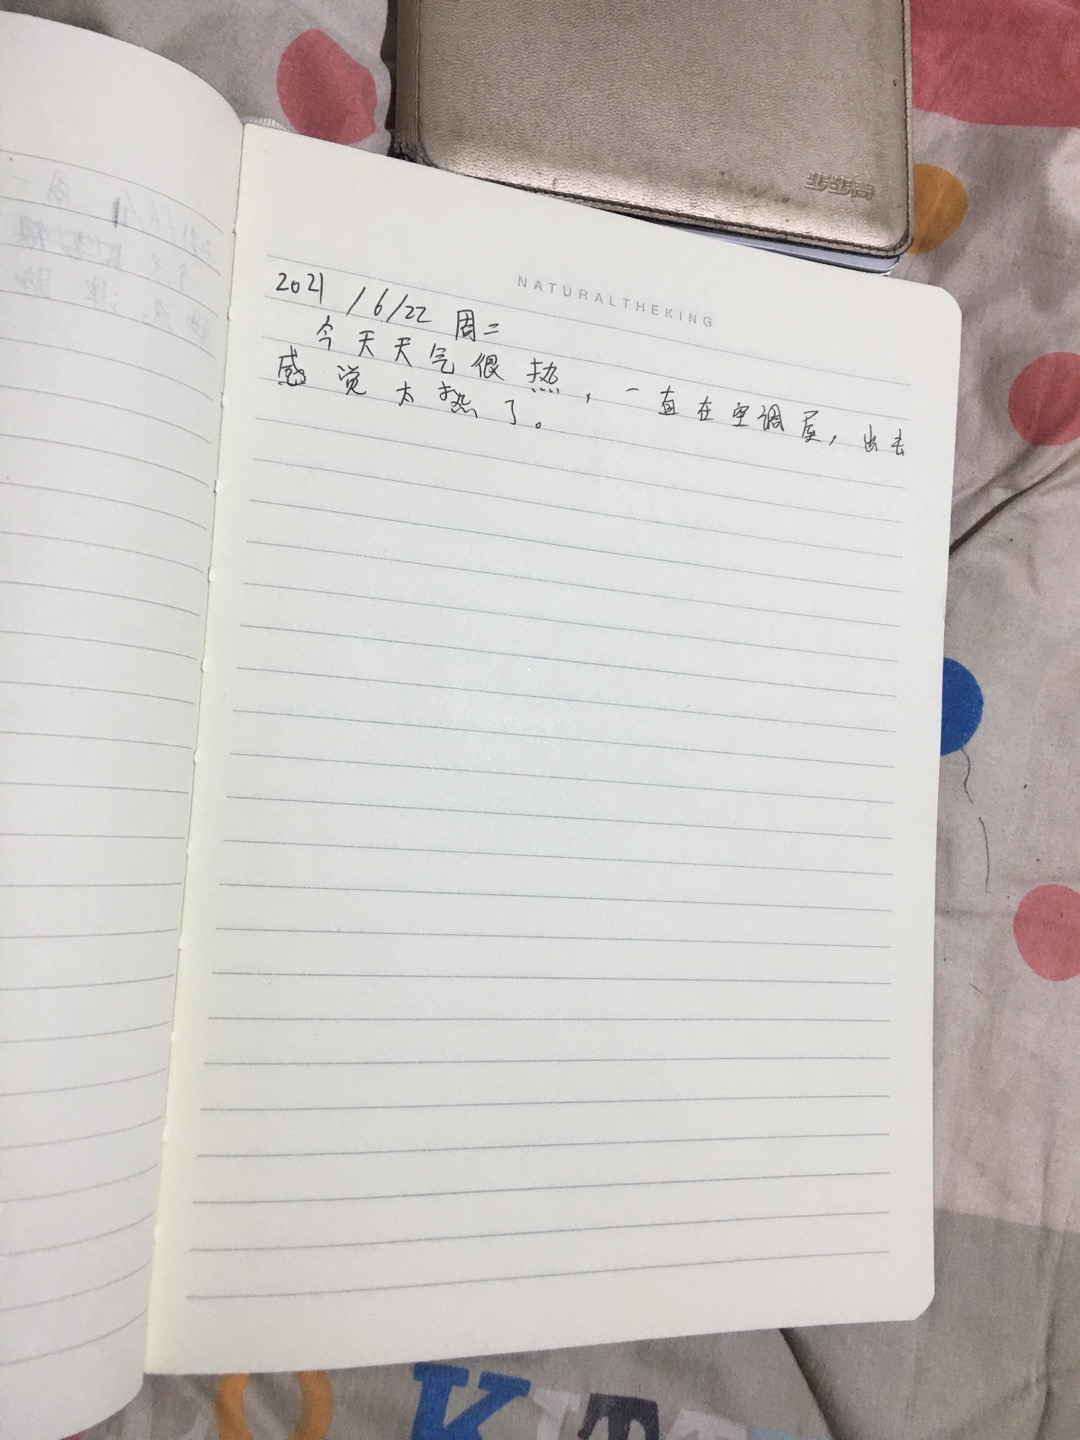 NATURALTHEKING
2021/6/22 周二
今天天气很热，一直在空调屋，出去
感觉太热了。
KIT